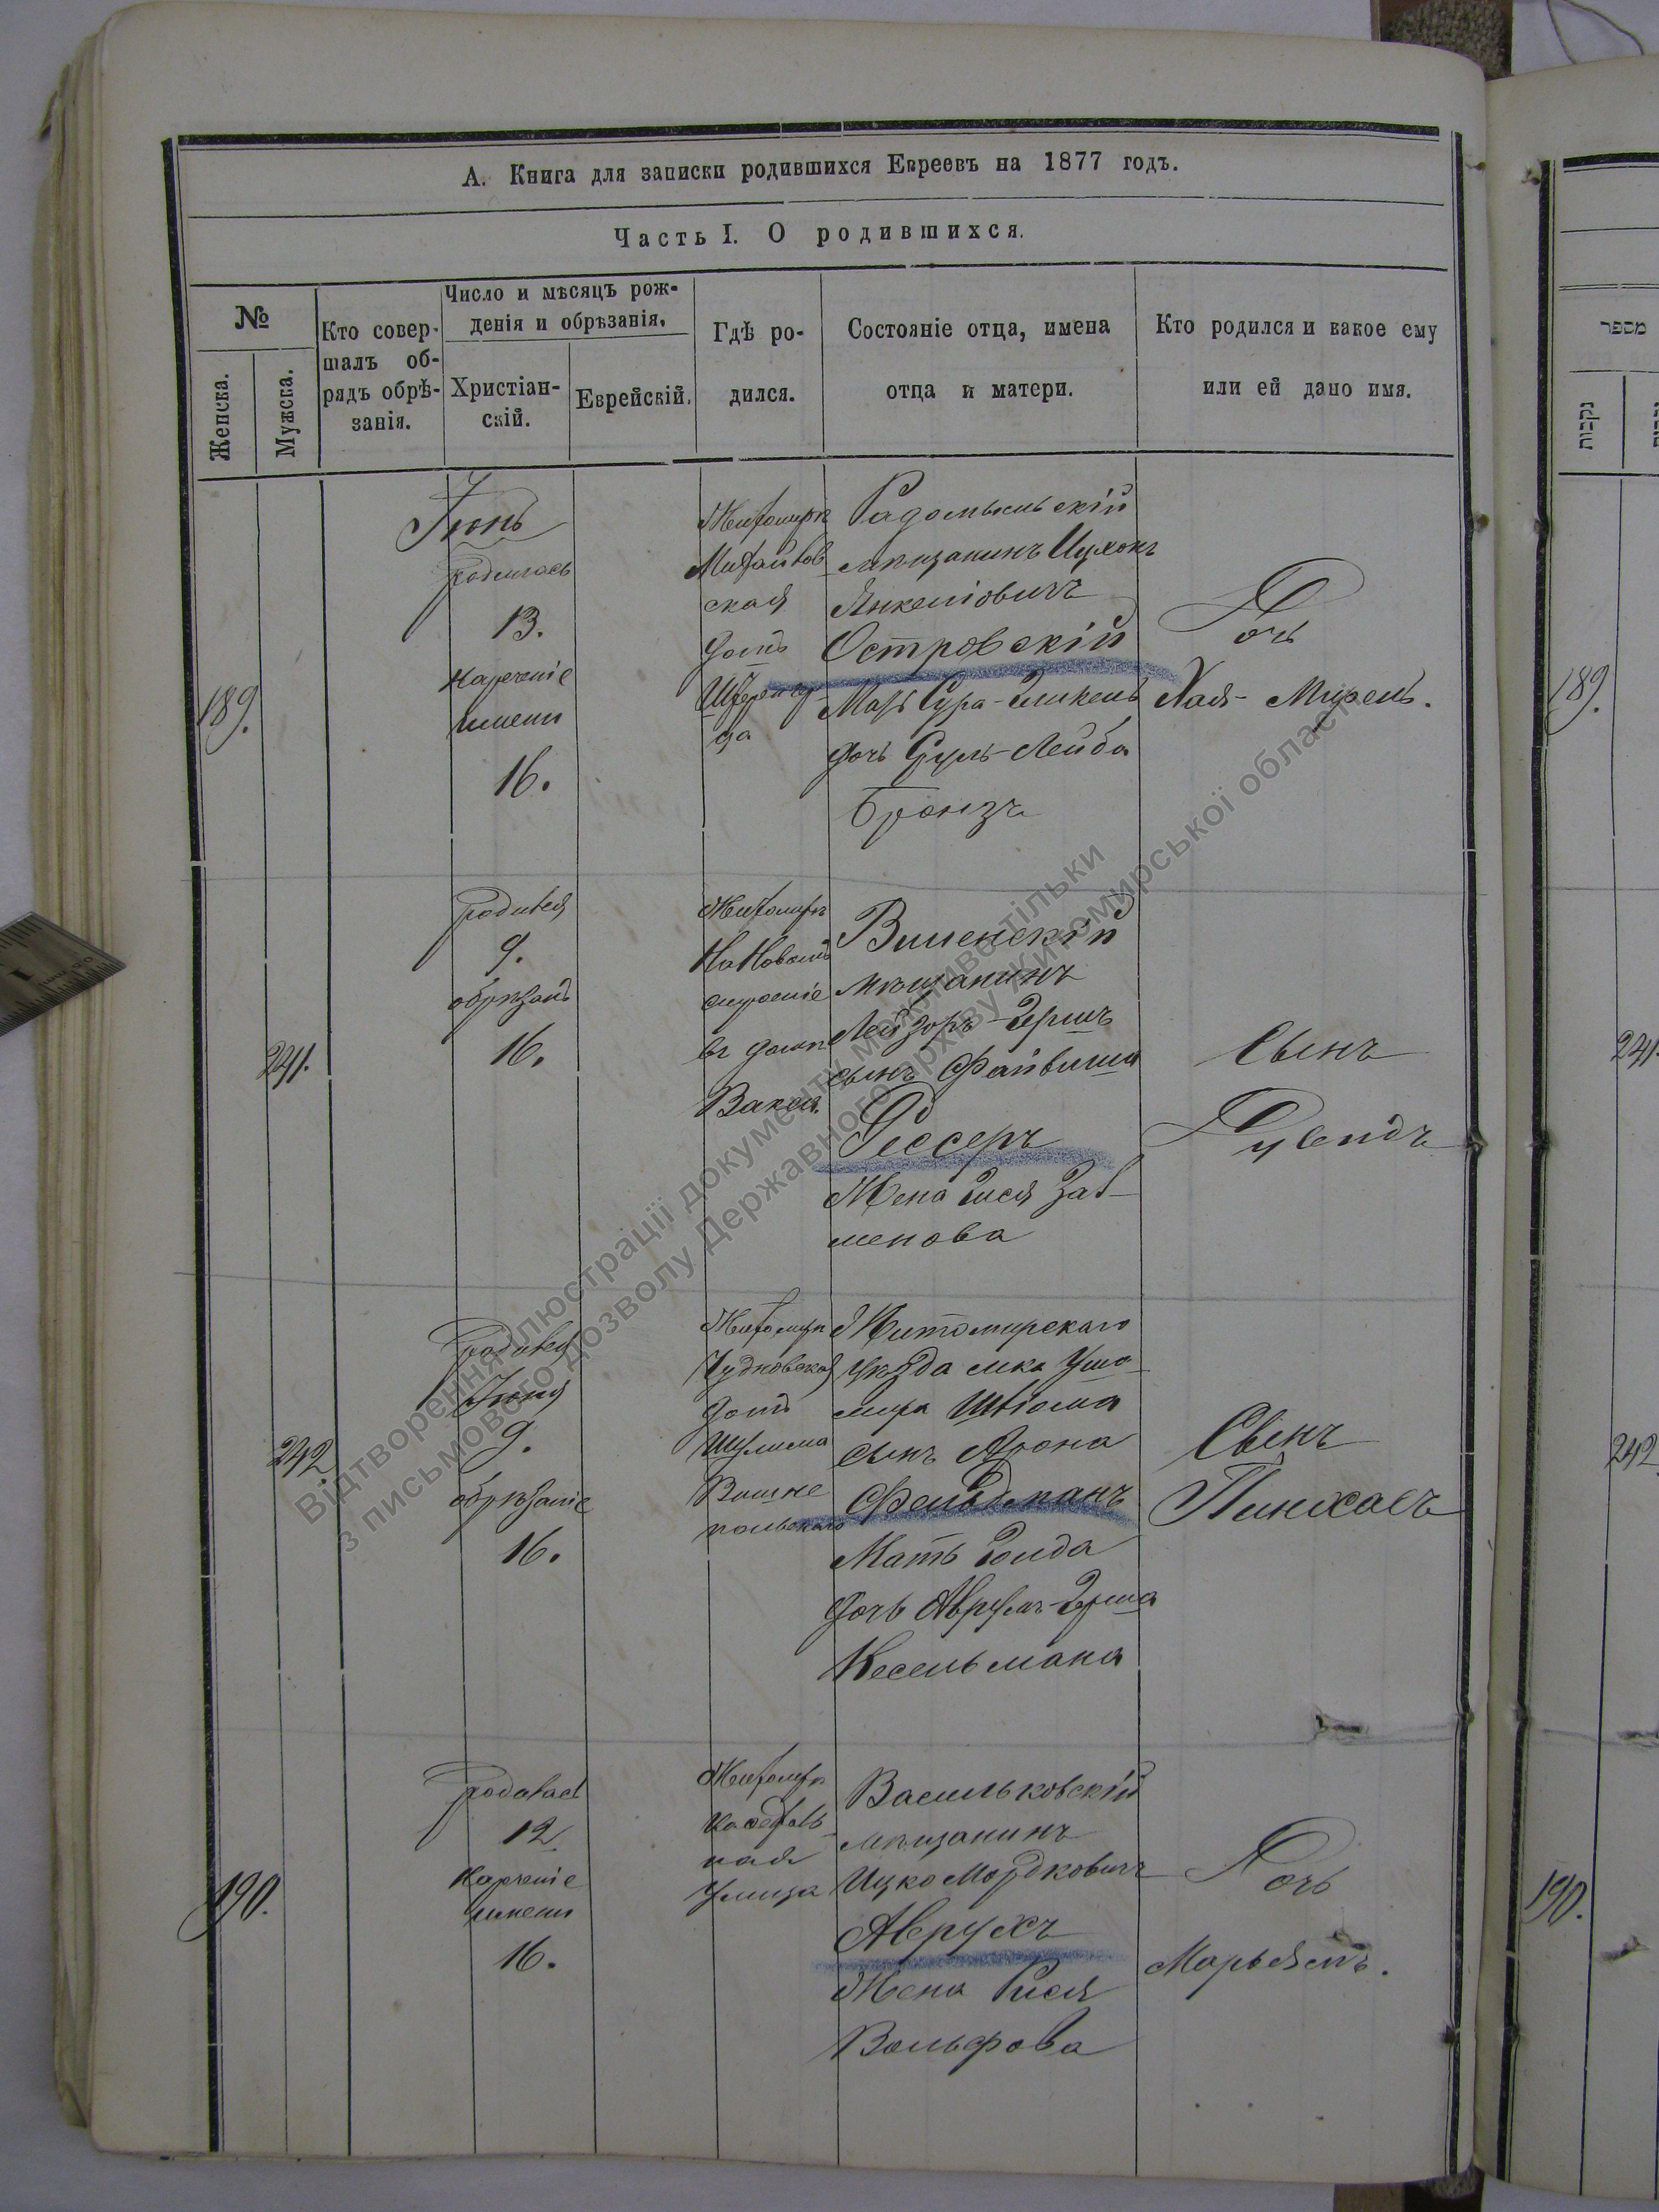 А. Книга для записки родившихся Евреевъ на 1877 годъ.
Часть I. О родившихся.
№
Женска.
Мужска.
Кто совер-
шалъ об-
рядъ обрѣ-
занія.
Число и мѣсяцъ рож-
денія и обрѣзанія.
Христіан-
скій.
Еврейскій.
Гдѣ ро-
дился.
Состояніе отца, имена
отца и матери.
Кто родился и какое ему
или ей дано имя.
189.
Іюнь
родилась
13.
нареченіе
имени
16.
Житомиръ
Михайлов
ская
домъ
Радомысльскій
мѣщанинъ Ицхокъ
Янкеліовичъ
Островскій
Мать Сура-
дочь Сруль-Лейба
Бронзъ
Дочь
Хая-Мирель.
241.
родился
9.
обрѣзанъ
16.
Житомиръ
На Новомъ
строеніе
въ домѣ
Вакса.
Виленскій
мѣщанинъ
Лейзоръ-Гершъ
сынъ Файвиша
Рессеръ
Жена Гися Зал-
менова
Сынъ
Дувидъ
242
родился
Іюня
9.
обрѣзаніе
16.
Житомиръ
Чудновская
домъ
Шулима
Вишне
польскаго
Житомирскаго
уѣзда мка Ушо-
мира Шліома
сынъ Арона
Фельдманъ
Мать Голда
дочь Аврумъ-Герша
Кесельмана
Сынъ
Пинхасъ
190.
родилась
12
нареченіе
имени
16.
Житомиръ
Кафедраль-
ная
улица
Васильковскій
мѣщанинъ
Ицко Мордковичъ
Аврухъ
Жена Рися
Вольфова
Дочь
Марьямъ.
מספר
נקבות
189.
241.
242
190.
Відтворення ілюстрації документу можливо тільки
з письмового дозволу Державного архіву Житомирської області